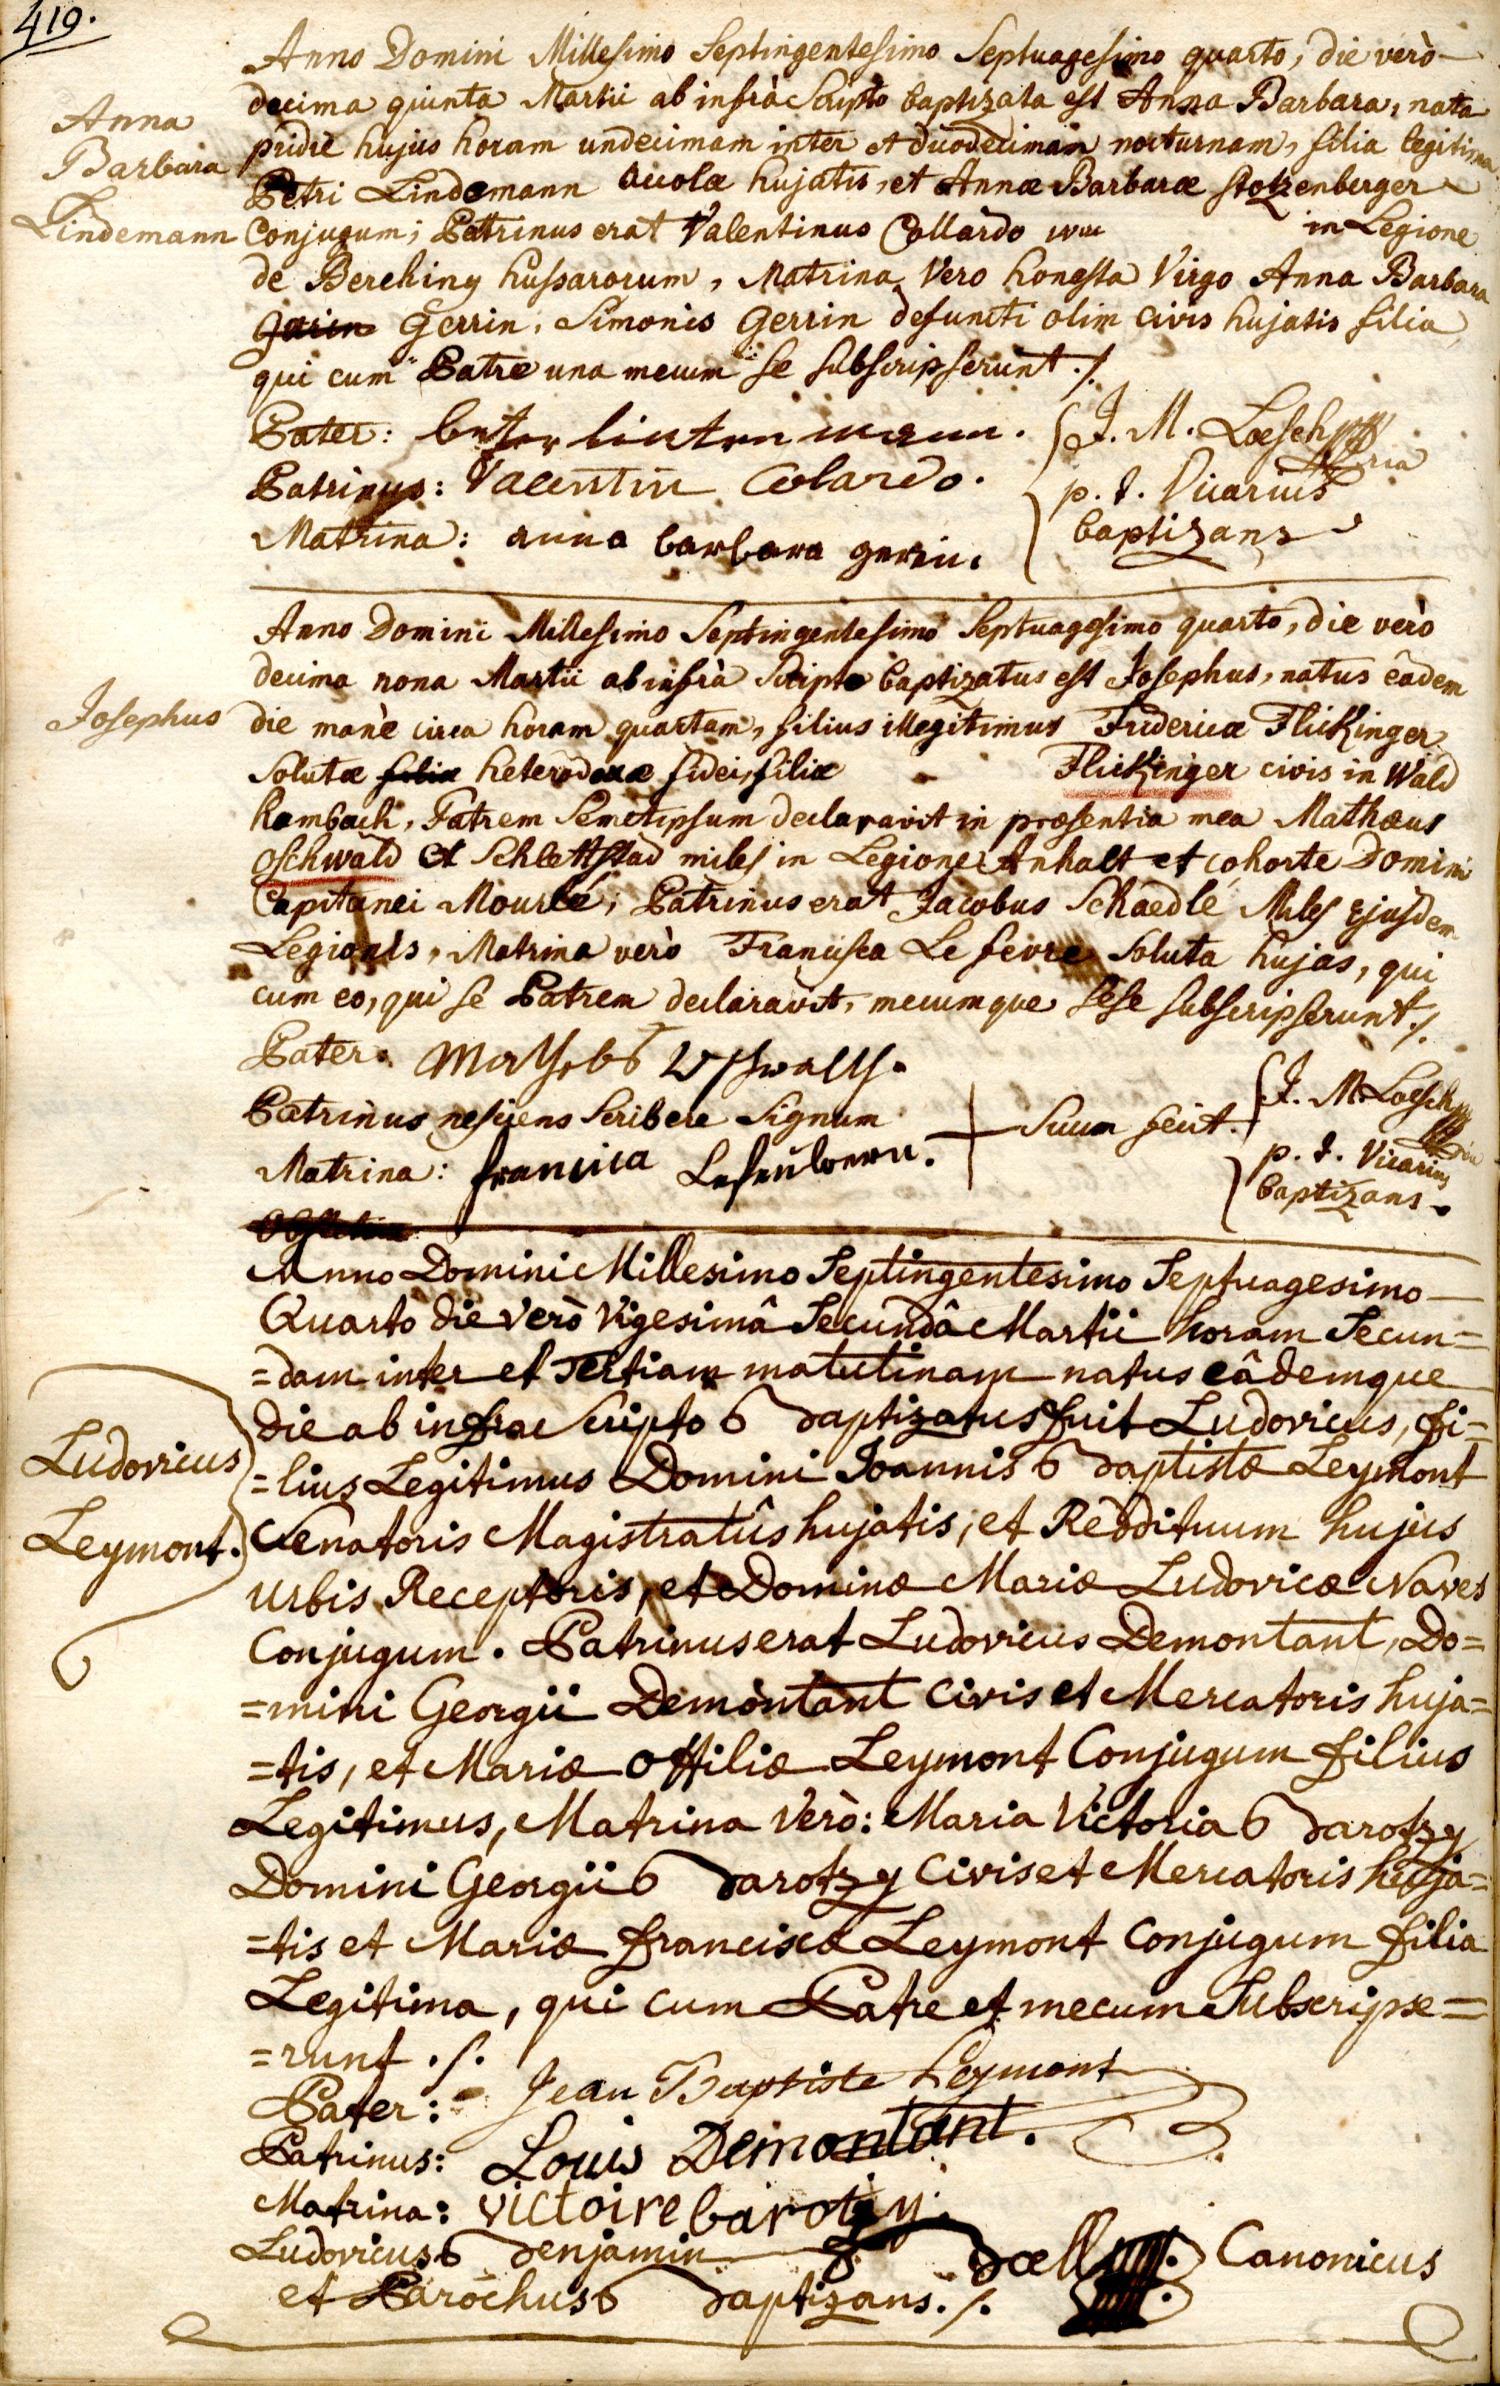 419.
Anno Domini Millesimo Septingentesimo Septuagesimo quarto, die verò
decima quinta Martii ab infrà Scripto baptizata est Anna Barbara, nata
pridie hujus horam undecimam inter et duodecimam nocturnam, filia legitima
Petri Lindemann accolæ hujatis, et Annæ Barbaræ Stotzenberger
Conjugum; Patrinus erat Valentinus Collardo in Legione
de Berchiny hussarorum, Matrina Vero honesta Virgo Anna Barbara
Gerrin, Simonis Gerrin defuncti olim civis hujatis filia,
qui cum Patre una mecum se subscripserunt ./.
Anna
Barbara
Lindemann
Pater:
Patrinus: Valentin Colardo.
Matrina: anna barbara gerin.
J. M. Loesch
p. t. Vicarius
baptizans
Anno Domini Millesimo Septingentesimo Septuagesimo quarto, die verò
decima nona Martii ab infrà Scripto baptizatus est Josephus, natus eâdem
die manè circa horam quartam, filius illegitimus Fridericæ Flickinger
Solutæ heterodoxæ fidei, filiæ Flickinger civis in Wald
hambach, Patrem Semetipsum declaravit in præsentia mea Mathæus
Oschwald et Schlettstad miles in Legione Anhalt et cohorte Domini
Capitanei Mourlé; Patrinus erat Jacobus Schaedlé Miles Ejusdem
Legionis, Matrina verò Francisca Le fevre soluta hujas, qui
cum eo, qui se Patrem declaravit, mecumque sese subscripserunt ./.
Josephus
Pater.
Patrinus nesciens Scribere Signum + Suum fecit.
Matrina:
J. M. Loesch
p. t. Vicarius
baptizans.
Anno Domini Millesimo Septingentesimo Septuagesimo
Quarto die verò Vigesimâ Secundâ Martii horam Secun=
=dam inter et Tertiam matutinam natus eâdemque
die ab infra Scripto Baptizatus fuit Ludovicus, fi=
=lius Legitimus Domini Joannis Baptistæ Leymont
Senatoris Magistratûs hujatis, et Reddituum hujus
Urbis Receptoris, et Dominæ Mariæ Ludovicæ Naves
Conjugum. Patrinus erat Ludovicus Demontant, Do=
=mini Georgii Demontant Civis et Mercatoris huja=
=tis, et Mariæ Ottiliæ Leymont Conjugum filius
Legitimus, Matrina Verò: Maria Victoria Barotzy
Domini Georgii Barotzy Civis et Mercatoris huja=
=tis et Mariæ franciscæ Leymont Conjugum filia
Legitima, qui cum Patre et mecum Subscripse=
=runt ./.
Ludovicus
Leymont.
Pater: Jean Baptiste Leymont
Patrinus: Louis Demontant.
Matrina: victoire barotzy.
Ludovicus Benjamin Canonicus
et Parochus Baptizans ./.